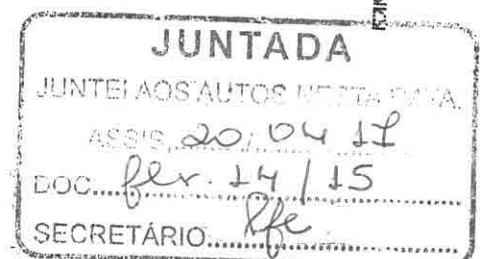 JUNTADA
JUNTEI AOS AUTOS NESTA DATA.
ASSIS, 20, 04 17
DOC. flr. 14/15
SECRETÁRIO